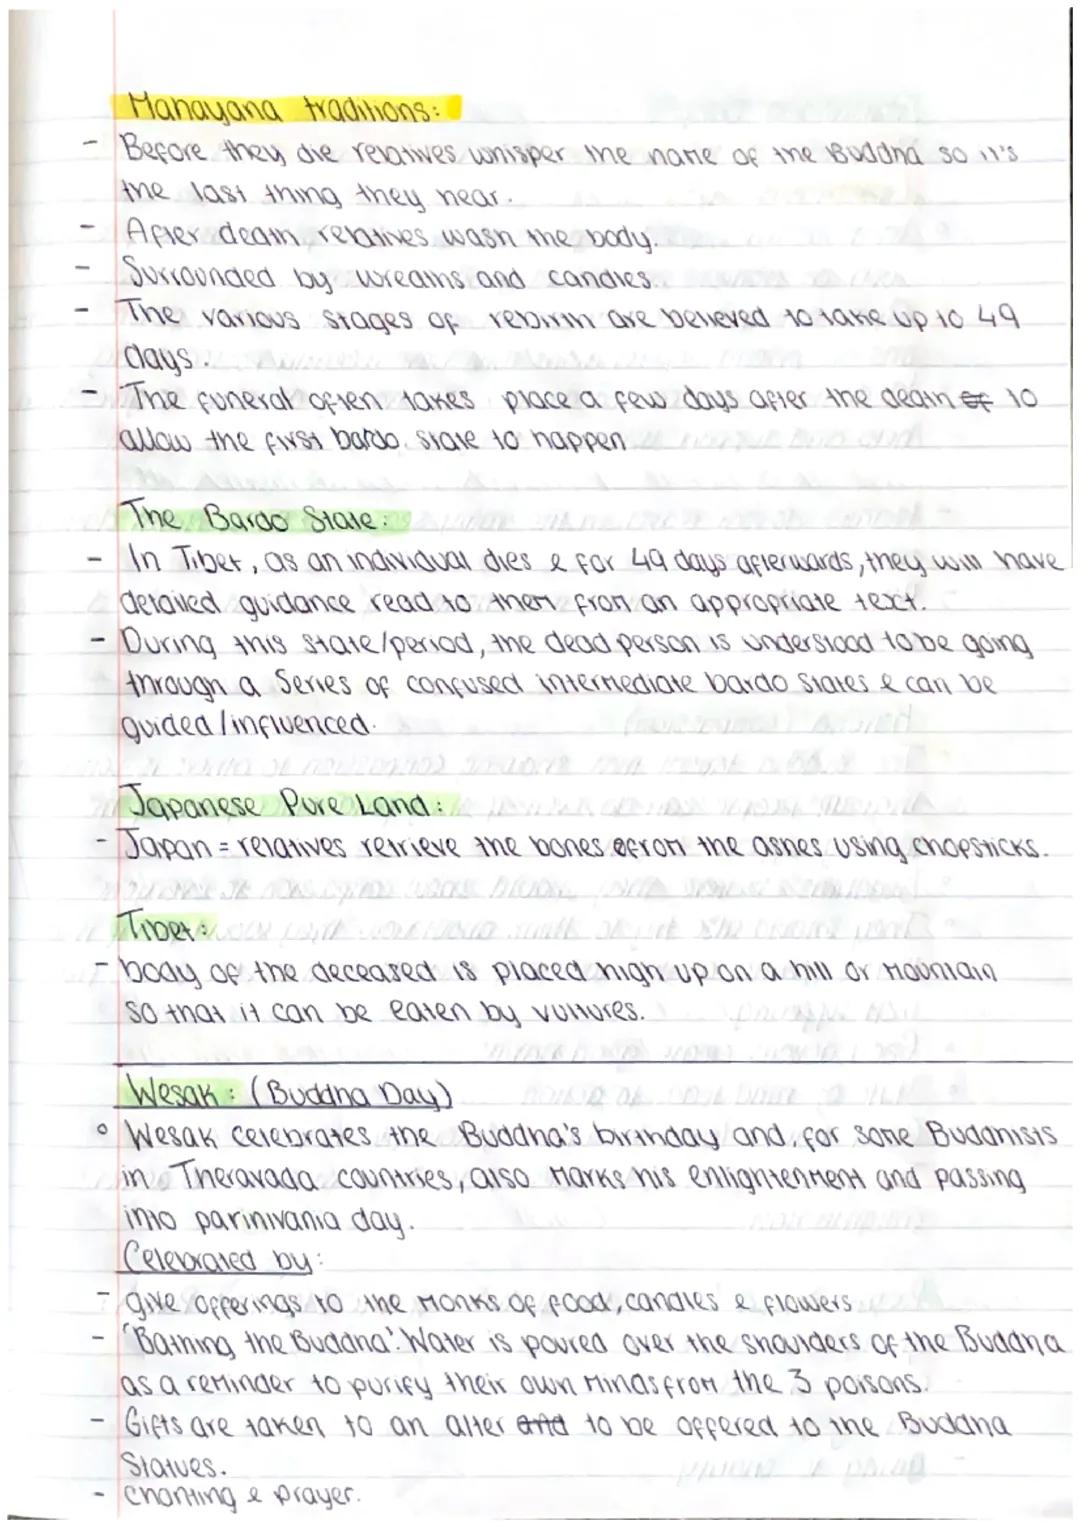 Mahayana traditions:
- Before they die relatives whisper the name of the Buddha so it's
the last thing they hear.
- After death relatives wash the body.
- Surrounded by wreaths and candles.
- The various stages of rebirth are believed to take up to 49
days.
- The funeral often takes place a few days after the death of to
allow the first bardo state to happen
The Bardo State:
- In Tibet, as an individual dies & for 49 days afterwards, they will have
detailed guidance read to them from an appropriate text.
- During this state/period, the dead person is understood to be going
through a series of confused intermediate bardo states & can be
guided/influenced.
Japanese Pure Land:
- Japan = relatives retrieve the bones from the ashes using chopsticks.
Tibet:
- body of the deceased is placed high up on a hill or mountain
so that it can be eaten by vultures.
Wesak: (Buddha Day)
° Wesak celebrates the Buddha's birthday and, for some Buddhists
in Theravada countries, also marks his enlightenment and passing
into parinivania day.
Celebrated by:
- give offerings to the monks of food, candles & flowers
- 'Bathing the Buddha'. Water is poured over the shoulders of the Buddha
as a reminder to purify their own minds from the 3 poisons.
- Gifts are taken to an alter and to be offered to the Buddha
Statues.
- chanting & prayer.